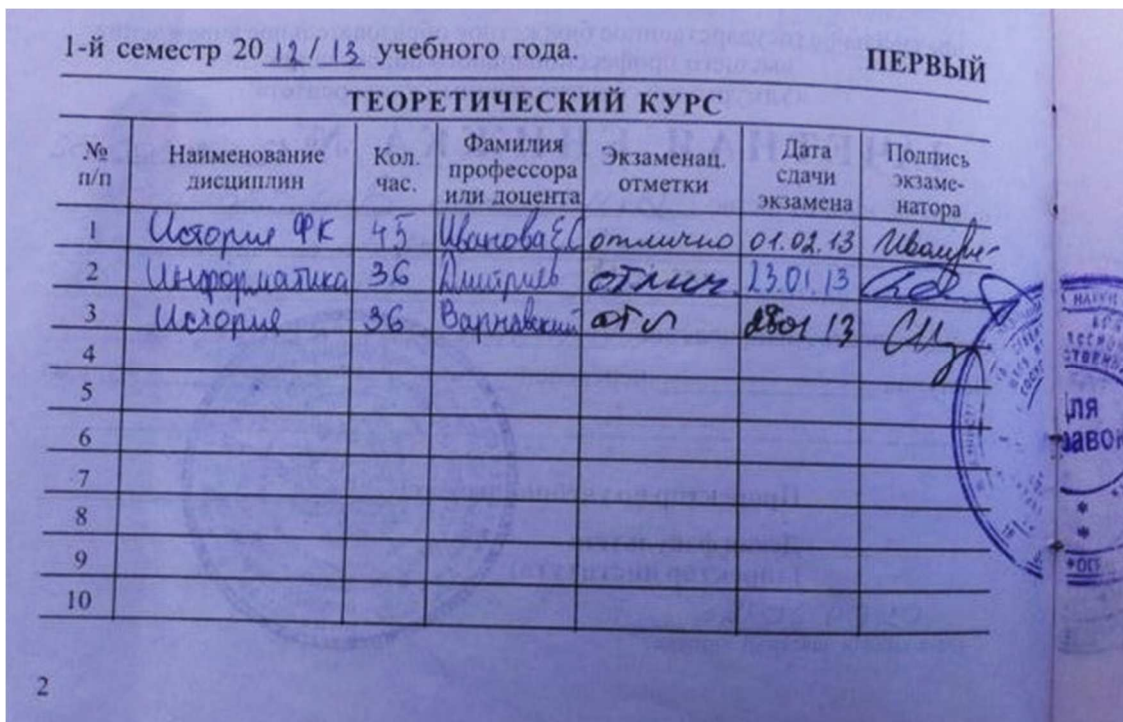 1-й семестр 2012/13 учебного года.
ПЕРВЫЙ
ТЕОРЕТИЧЕСКИЙ КУРС
№ п/п Наименование дисциплин Кол. час. Фамилия профессора или доцента Экзаменац. отметки Дата сдачи экзамена Подпись экзаме-натора
1 История ФК 45 Иванова Е.С отлично 01.02.13
2 Информатика 36 Дмитриев отлич 23.01.13
3 История 36 Варнавский отл 28 01 13
4
5
6
7
8
9
10
2